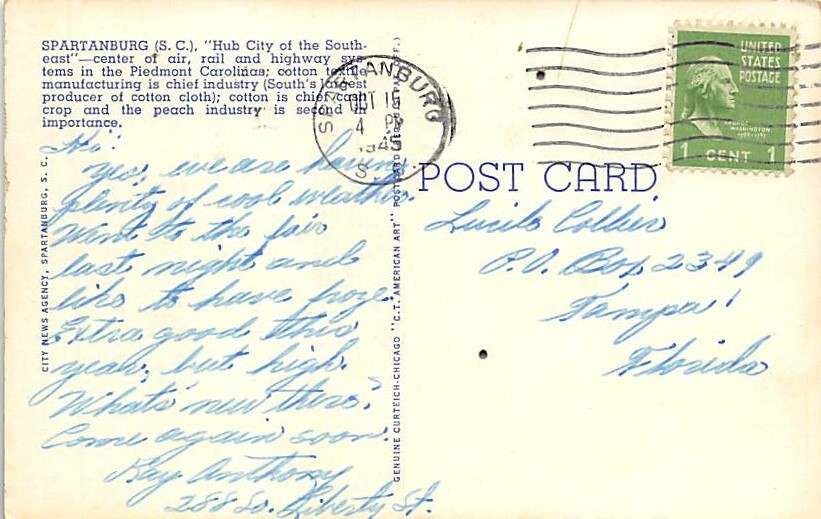 SPARTANBURG (S. C.), "Hub City of the South-
east"—center of air, rail and highway sys-
tems in the Piedmont Carolinas; cotton textile
manufacturing is chief industry (South's largest
producer of cotton cloth); cotton is chief cash
crop and the peach industry is second in
importance.
Hi:
Yes, we are having
plenty of cool weather.
Went to the fair
last night and
like to have froze.
Extra good this
year, but high.
What's new there?
Come again soon.
Ray Anthony
288 So. Liberty St.
CITY NEWS AGENCY, SPARTANBURG, S. C.
GENUINE CURTEICH-CHICAGO "C.T. AMERICAN ART" POSTCARD (REG. U.S. PAT. OFF.)
SPARTANBURG
OCT
4 PM
1945
S.
UNITED
STATES
POSTAGE
GEORGE
WASHINGTON
1 CENT 1
POST CARD
Lucile Collier
P.O. Box 2349
Tampa!
Florida